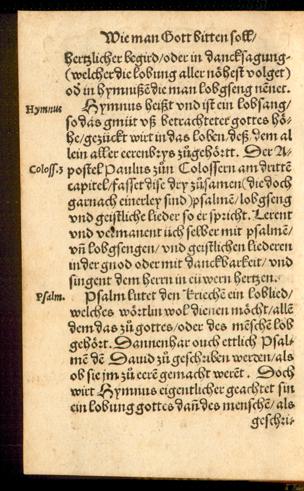 Wie man Gott bitten soll/
hertzlicher begird/oder in dancksagung-
(welcher die lobung aller nöhest volget)
od in hymnußē die man lobgseng nēnet.
Hymnus
Hymnus heißt vnd ist ein lobsang/
so das gmüt vß betrachteter gottes hö-
he/gezückt wirt in das loben deß/dem al
lein aller eerenbrys zůgehörtt. Der A-
Coloss.3
postel Paulus zůn Colossern am drittē
capitel/fasset dise dry zůsamen(die doch
garnach einerley sind)psalmē/lobgseng
vnd geistliche lieder so er spricht. Lerent
vnd vermanent üch selber mit psalmē/
vñ lobgsengen/vnd geistlichen liederen
in der gnod oder mit danckbarkeit/vnd
singent dem herrn in eüwern hertzen.
Psalm.
Psalm lutet den kriechē ein loblied/
welches wörtlin wol dienen möcht/allē
dem das zů gottes/oder des mēschē lob
gehört. Dannenhar ouch ettlich Psal-
mē dē Dauid zů geschriben werden/als
ob sie jm zů eerē gemacht werēt. Doch
wirt Hymnus eigentlicher geachtet sin
ein lobung gottes dañ des menschē/als
geschri-